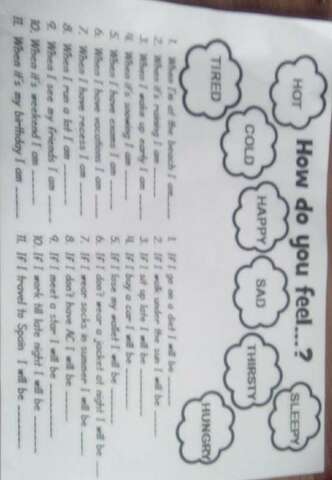 How do you feel...?
HOT
COLD
HAPPY
SAD
THIRSTY
SLEEPY
TIRED
HUNGRY
1. When I'm at the beach I am
2. When it's raining I am
3. When I wake up early I am
4. When it's snowing I am
5. When I have exams I am
6. When I have vacations I am
7. When I have recess I am
8. When I run a lot I am
9. When I see my friends I am
10. When it's weekend I am
11. When it's my birthday I am
1. If I go on a diet I will be
2. If I walk under the sun I will be
3. If I sit up late I will be
4. If I buy a car I will be
5. If I lose my wallet I will be
6. If I don't wear a jacket at night I will be
7. If I wear socks in summer I will be
8. If I don't have AC I will be
9. If I meet a star I will be
10. If I work till late night I will be
11. If I travel to Spain I will be